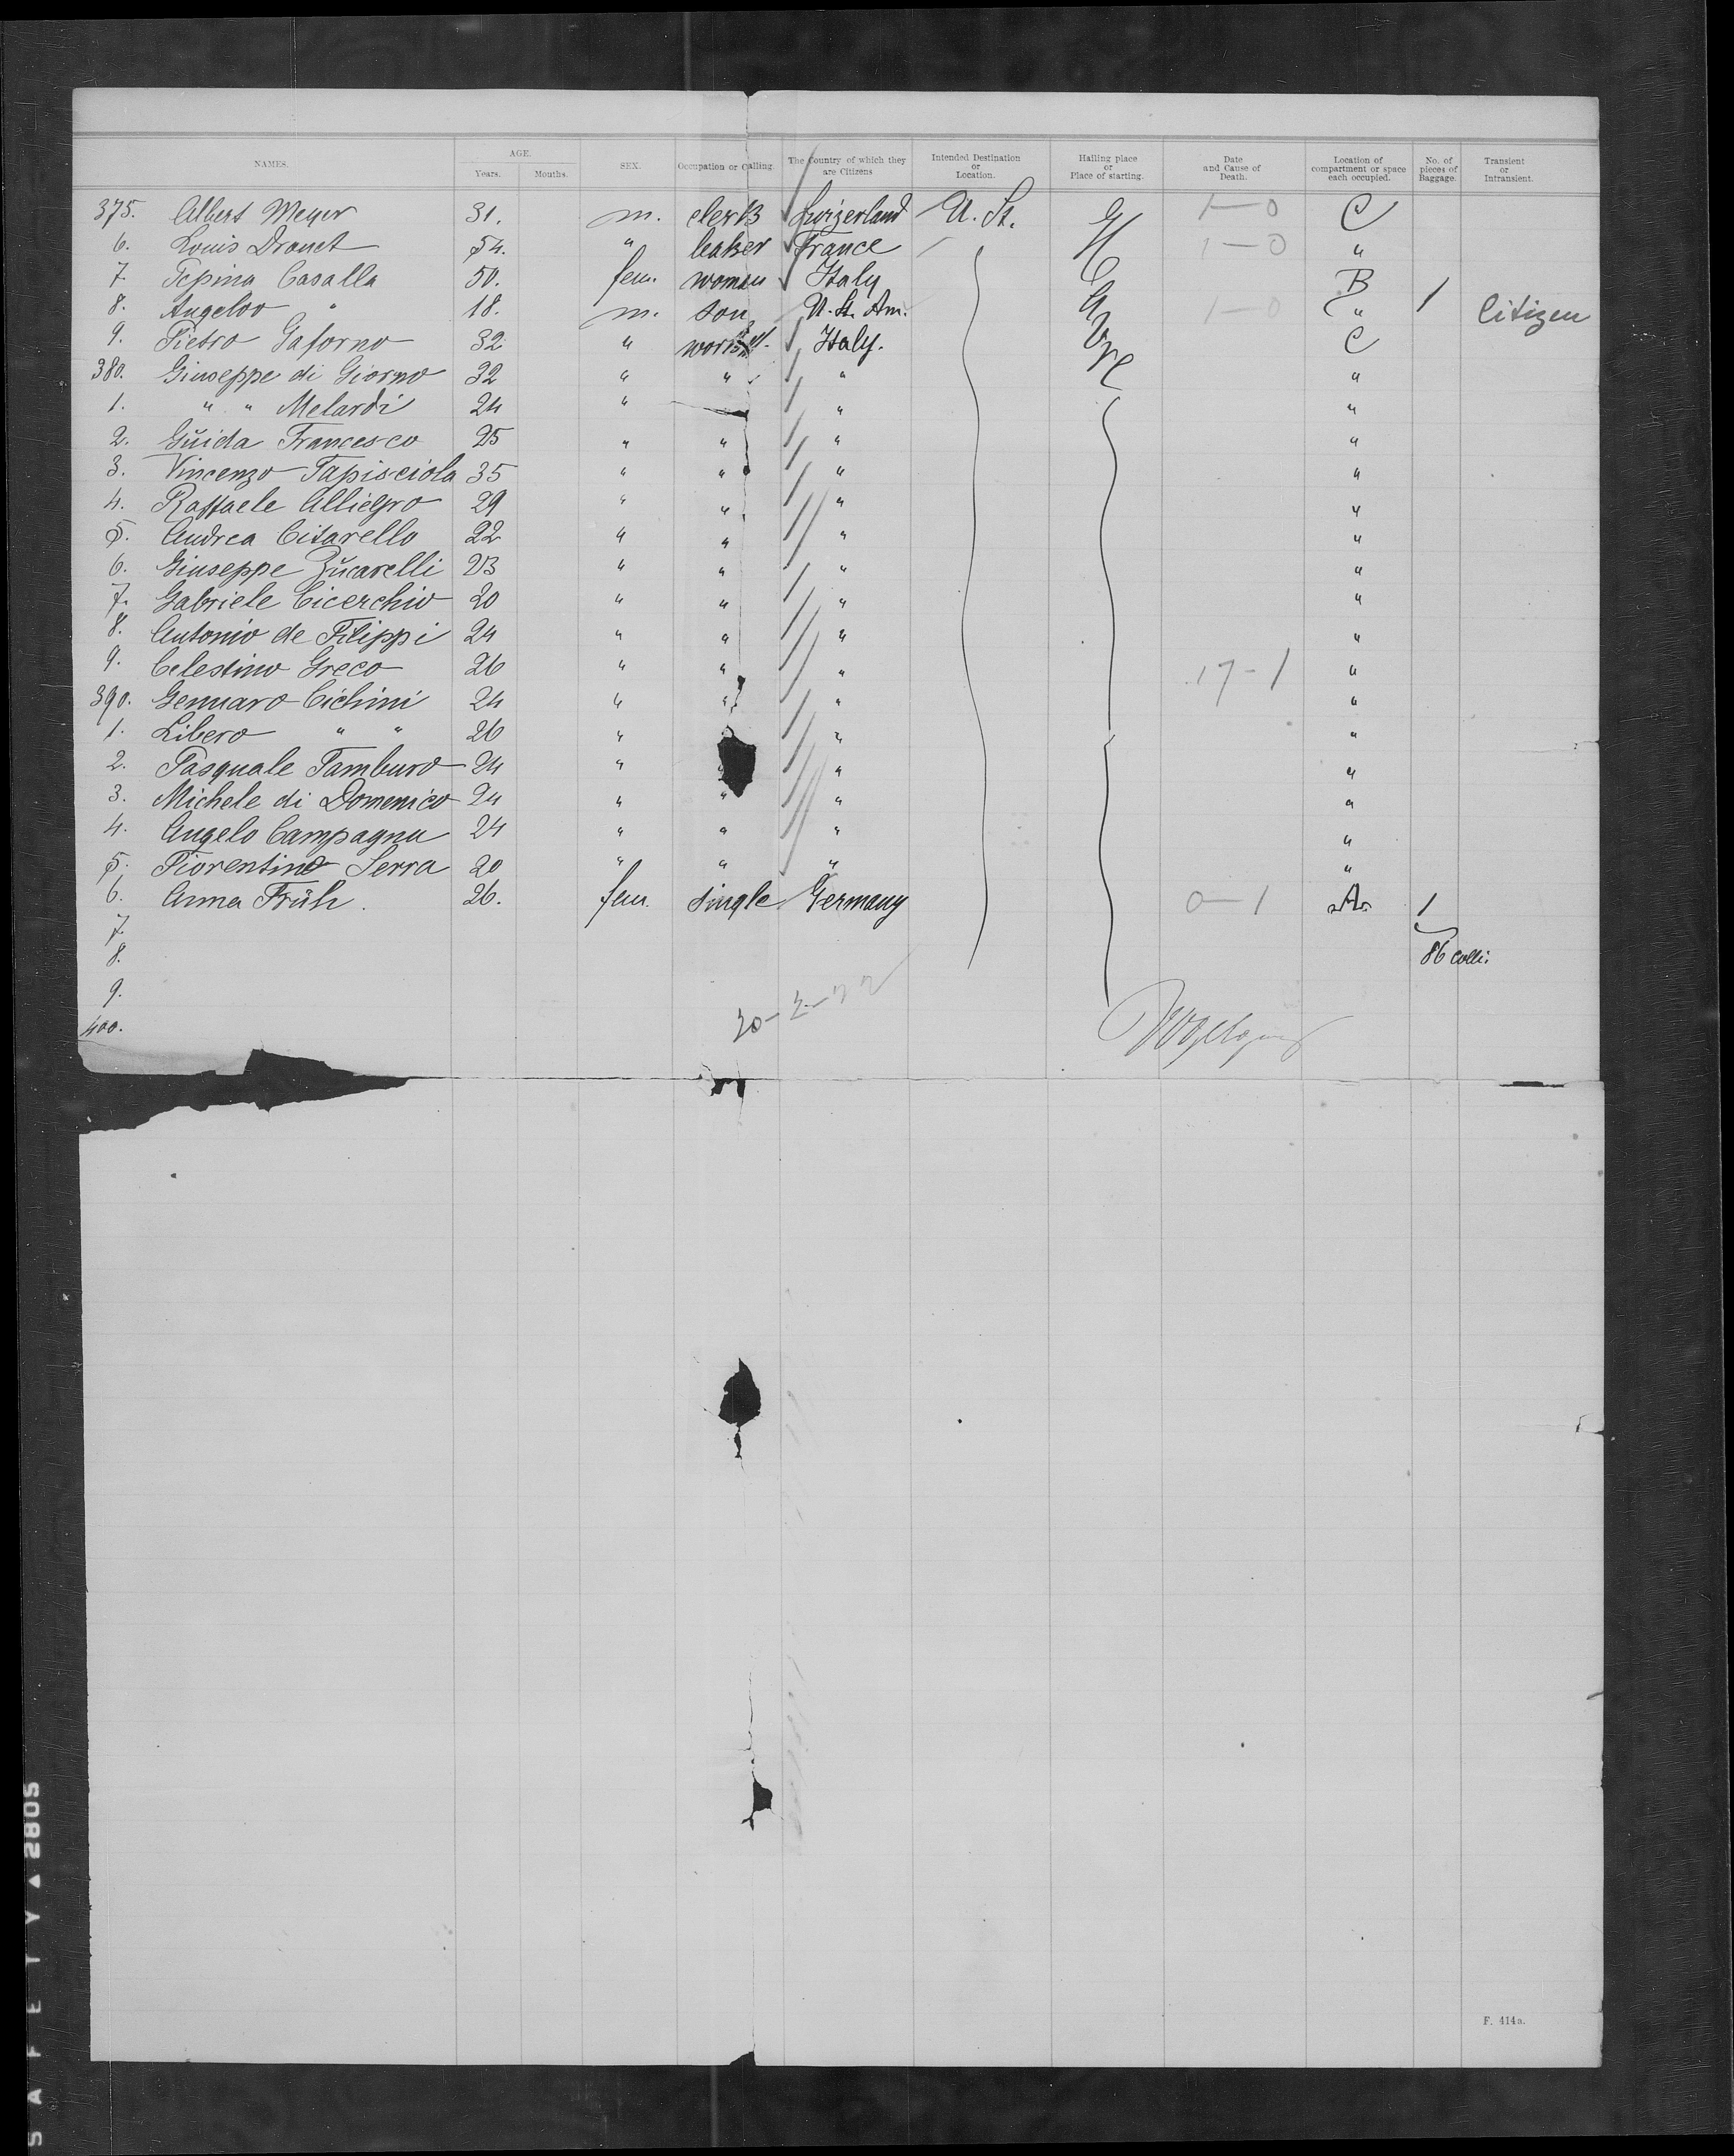 NAMES. AGE. Years. Months. SEX. Occupation or Calling. The Country of which they are Citizens Intended Destination or Location. Hailing place or Place of starting. Date and Cause of Death. Location of compartment or space each occupied. No. of pieces of Baggage. Transient or Intransient.
375. Albert Meyer 31. m. clerk Swizerland U. St. 1-0 C
6. Louis Drouet 54. " baker France 1-0 "
7. Pepina Casalla 50. fem. woman Italy B
8. Angeloo " 18. m. son U. St. Am. 1-0 " 1 Citizen
9. Pietro Gaforno 32 " Italy. C
380. Giuseppe di Giorno 32 " " " "
1. " " Melardi 24 " " "
2. Guida Francesco 25 " " " "
3. Vincenzo Tapisciola 35 " " " "
4. Raffaele Alliegro 29 " " " "
5. Andrea Citarello 22 " " " "
6. Giuseppe Zŭcarelli 23 " " " "
7. Gabriele Cicerchio 20 " " " "
8. Antonio de Filippi 24 " " " "
9. Celestino Greco 26 " " " 17-1 "
390. Gennaro Cichini 24 " " " "
1. Libero " " 26 " " "
2. Pasquale Tamburo 24 " " " "
3. Michele di Domenico 24 " " " "
4. Angelo Campagna 24 " " " "
5. Fiorentino Serra 20 " " " "
6. Anna Früh. 26. fem. single Germany 0-1 A 1
7.
8. 86 colli:
9.
400. 20-2-22
F. 414a.
SAFETY ▲ 2805